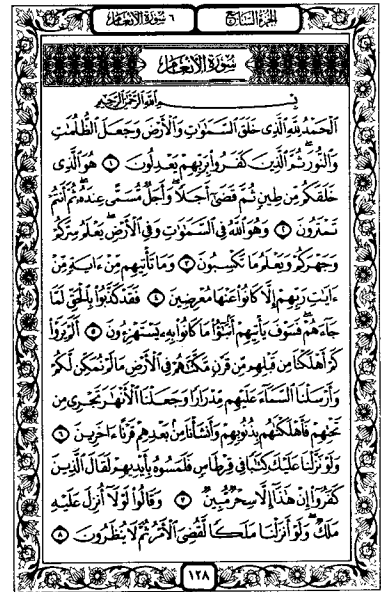 الجزء السابع
٦ سورة الأنعام
سورة الأنعام
بسم الله الرحمن الرحيم
ٱلْحَمْدُ لِلَّهِ ٱلَّذِى خَلَقَ ٱلسَّمَٰوَٰتِ وَٱلْأَرْضَ وَجَعَلَ ٱلظُّلُمَٰتِ
وَٱلنُّورَ ثُمَّ ٱلَّذِينَ كَفَرُوا۟ بِرَبِّهِمْ يَعْدِلُونَ ١ هُوَ ٱلَّذِى
خَلَقَكُم مِّن طِينٍ ثُمَّ قَضَىٰٓ أَجَلًا وَأَجَلٌ مُّسَمًّى عِندَهُۥ ثُمَّ أَنتُمْ
تَمْتَرُونَ ٢ وَهُوَ ٱللَّهُ فِى ٱلسَّمَٰوَٰتِ وَفِى ٱلْأَرْضِ يَعْلَمُ سِرَّكُمْ
وَجَهْرَكُمْ وَيَعْلَمُ مَا تَكْسِبُونَ ٣ وَمَا تَأْتِيهِم مِّنْ ءَايَةٍ مِّنْ
ءَايَٰتِ رَبِّهِمْ إِلَّا كَانُوا۟ عَنْهَا مُعْرِضِينَ ٤ فَقَدْ كَذَّبُوا۟ بِٱلْحَقِّ لَمَّا
جَآءَهُمْ فَسَوْفَ يَأْتِيهِمْ أَنۢبَٰٓؤُا۟ مَا كَانُوا۟ بِهِۦ يَسْتَهْزِءُونَ ٥ أَلَمْ يَرَوْا۟
كَمْ أَهْلَكْنَا مِن قَبْلِهِم مِّن قَرْنٍ مَّكَّنَّٰهُمْ فِى ٱلْأَرْضِ مَا لَمْ نُمَكِّن لَّكُمْ
وَأَرْسَلْنَا ٱلسَّمَآءَ عَلَيْهِم مِّدْرَارًا وَجَعَلْنَا ٱلْأَنْهَٰرَ تَجْرِى مِن
تَحْتِهِمْ فَأَهْلَكْنَٰهُم بِذُنُوبِهِمْ وَأَنشَأْنَا مِنۢ بَعْدِهِمْ قَرْنًا ءَاخَرِينَ ٦
وَلَوْ نَزَّلْنَا عَلَيْكَ كِتَٰبًا فِى قِرْطَاسٍ فَلَمَسُوهُ بِأَيْدِيهِمْ لَقَالَ ٱلَّذِينَ
كَفَرُوٓا۟ إِنْ هَٰذَآ إِلَّا سِحْرٌ مُّبِينٌ ٧ وَقَالُوا۟ لَوْلَآ أُنزِلَ عَلَيْهِ
مَلَكٌ وَلَوْ أَنزَلْنَا مَلَكًا لَّقُضِىَ ٱلْأَمْرُ ثُمَّ لَا يُنظَرُونَ ٨
١٢٨